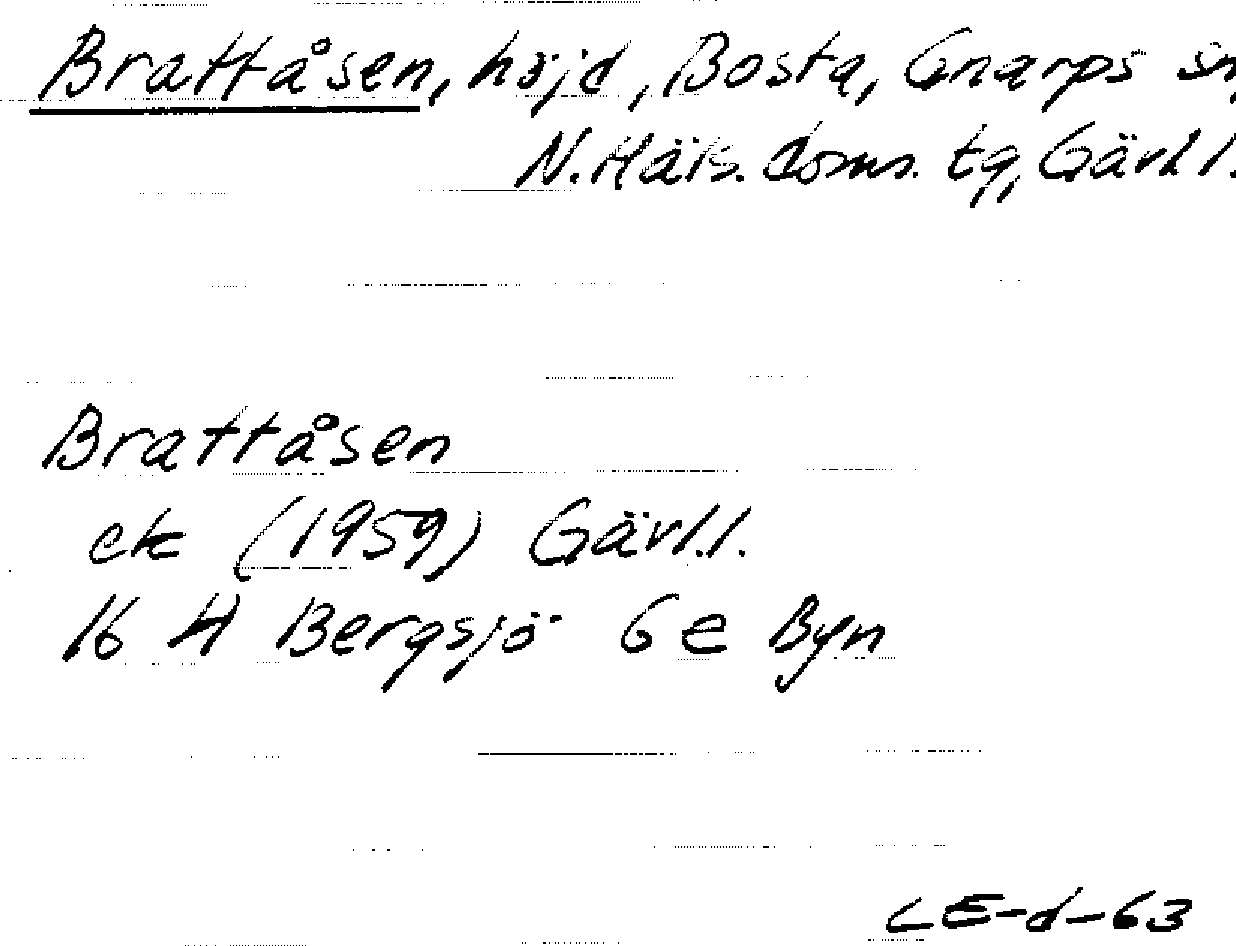 Brattåsen, höjd, Bosta, Gnarps sn,
N. Häls. doms. tg, Gävl.l.
Brattåsen
ek (1959) Gävl.l.
16 H Bergsjö 6 e Byn
LE-d-63